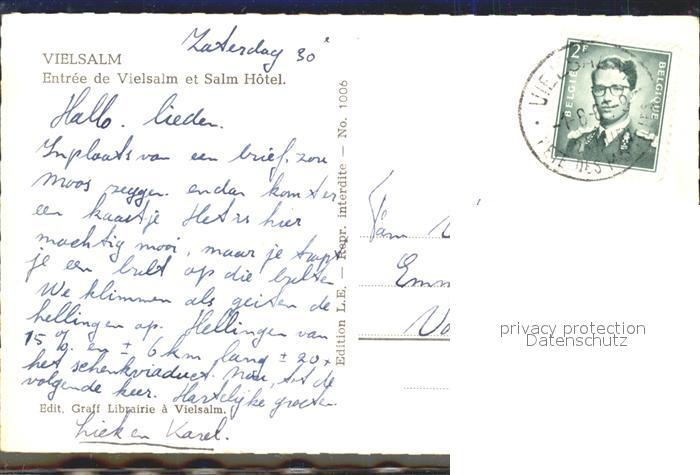 Zaterdag 30
VIELSALM
Entrée de Vielsalm et Salm Hôtel.
Hallo. lieden.
Inplaats van een brief. zou
Moos zeggen. en dan komt er
een kaartje Het is hier
machtig mooi, maar je trapt
je een bult op die bulten
We klimmen als geiten de
hellingen op. Hellingen van
15 % en ± 6 km lang ± 20 x
het schenkviaduct. Nou, tot de
volgende keer. Hartelijke groeten
Edit. Graff Librairie à Vielsalm.
Liek en Karel.
Edition L.E. — Repr. interdite — No. 1006
2F
BELGIE BELGIQUE
VIELSAL
Fam
Emm
privacy protection
Datenschutz